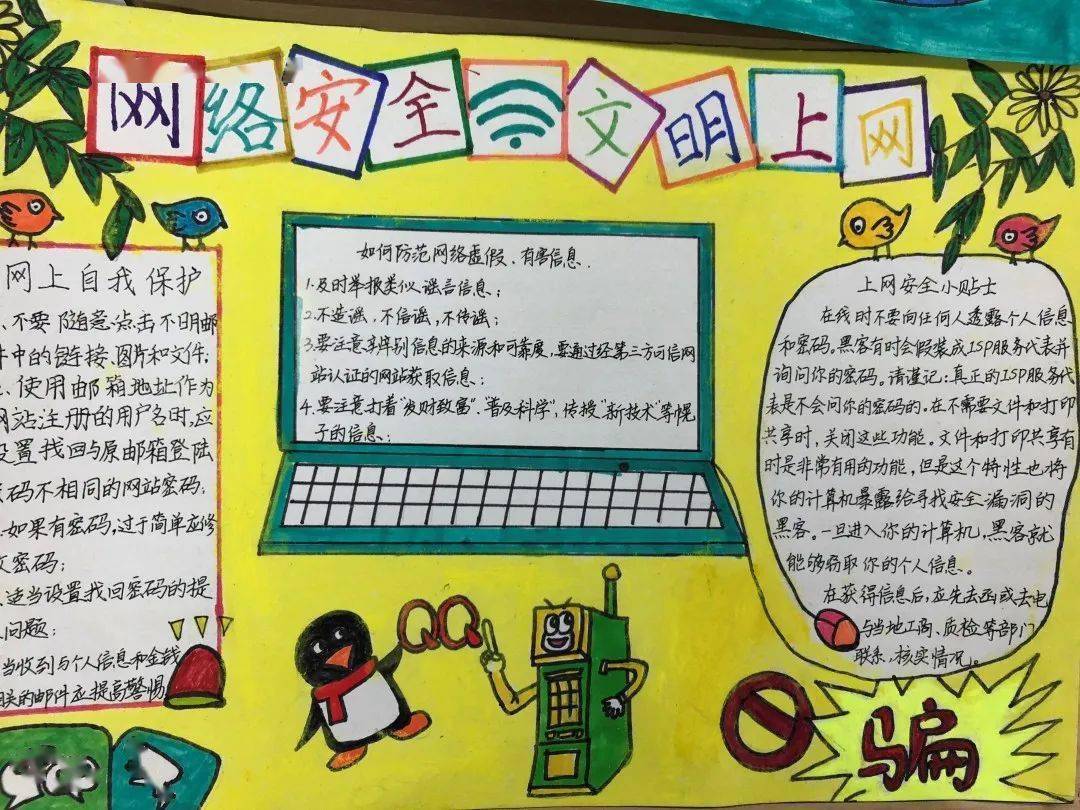 网络安全 文明上网
网上自我保护
、不要随意点击不明邮
件中的链接、图片和文件;
、使用邮箱地址作为
网站注册的用户名时,应
设置找回与原邮箱登陆
密码不相同的网站密码;
.如果有密码,过于简单应修
改密码;
、适当设置找回密码的提
问题:
当收到与个人信息和金钱
相关的邮件应提高警惕
如何防范网络虚假、有害信息.
1.及时举报类似谣言信息;
2.不造谣,不信谣,不传谣;
3.要注意辨别信息的来源和可靠度,要通过经第三方可信网
站认证的网站获取信息;
4.要注意打着“发财致富”、“普及科学”,传授“新技术”等幌
子的信息;
上网安全小贴士
在线时不要向任何人透露个人信息
和密码。黑客有时会假装成ISP服务代表并
询问你的密码。请谨记:真正的ISP服务代
表是不会问你的密码的。在不需要文件和打印
共享时,关闭这些功能。文件和打印共享有
时是非常有用的功能,但是这个特性也将
你的计算机暴露给寻找安全漏洞的
黑客。一旦进入你的计算机,黑客就
能够窃取你的个人信息。
在获得信息后,应先去函或去电
与当地工商、质检等部门
联系,核实情况。
QQ
骗